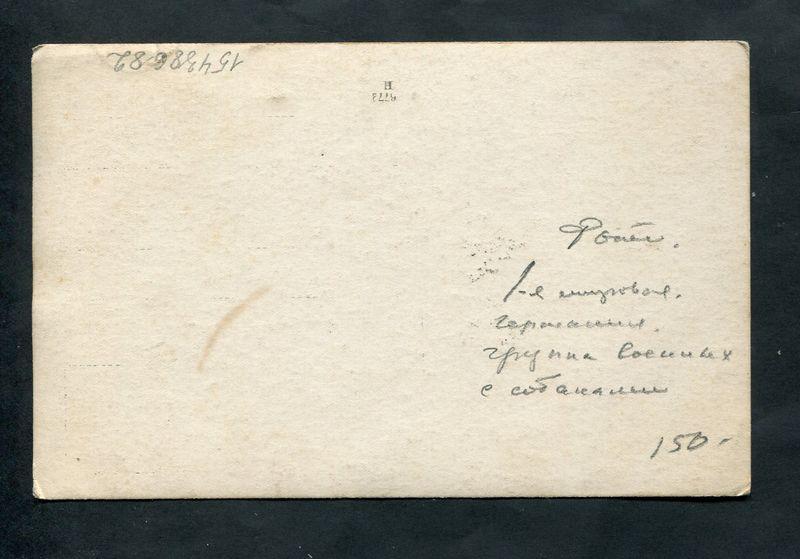 154388682
H
9773
Фото.
1-я мировая.
Германия.
группа военных
с собаками
150-